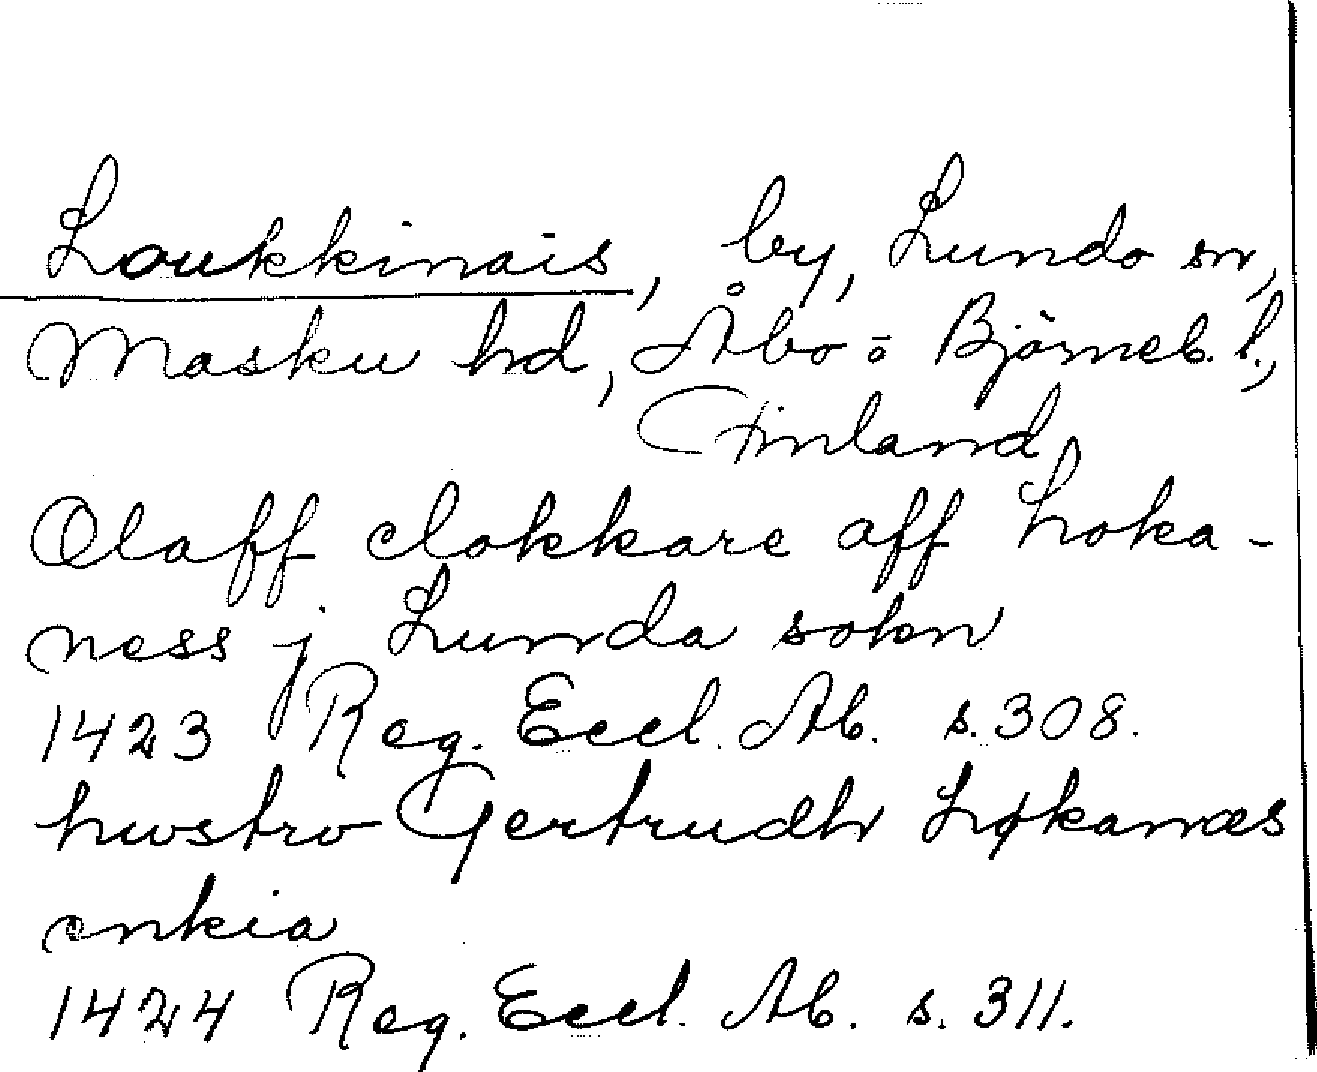 Loukkinais, by, Lundo sn,
Masku hd, Åbo o Björneb. l.,
Finland
Olaff clokkare aff Loka-
ness j Lunda sokn
1423 Reg. Eccl. Ab. s. 308.
hwstrv Gertrudh Løkanæs
enkia
1424 Reg. Eccl. Ab. s. 311.